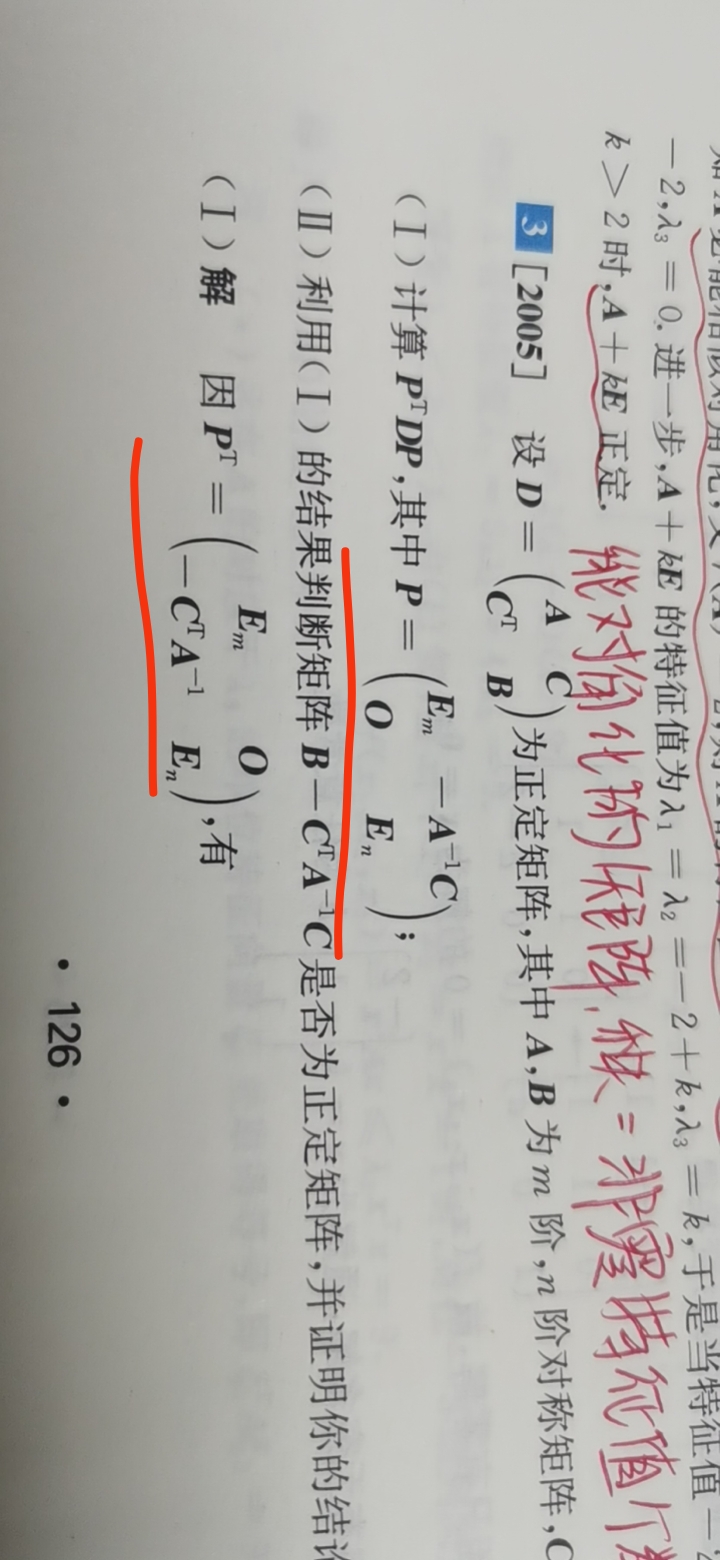 -2,λ₃=0.进一步,A+kE的特征值为λ₁=λ₂=-2+k,λ₃=k,于是当特征值
k>2时,A+kE正定.
能对角化的矩阵,秩=非零特征值个数
3 [2005] 设D=(A C
Cᵀ B)为正定矩阵,其中A,B为m阶,n阶对称矩阵,C
(Ⅰ)计算PᵀDP,其中P=(Eₘ -A⁻¹C
O Eₙ);
(Ⅱ)利用(Ⅰ)的结果判断矩阵B-CᵀA⁻¹C是否为正定矩阵,并证明你的结论
(Ⅰ)解 因Pᵀ=(Eₘ O
-CᵀA⁻¹ Eₙ),有
• 126 •